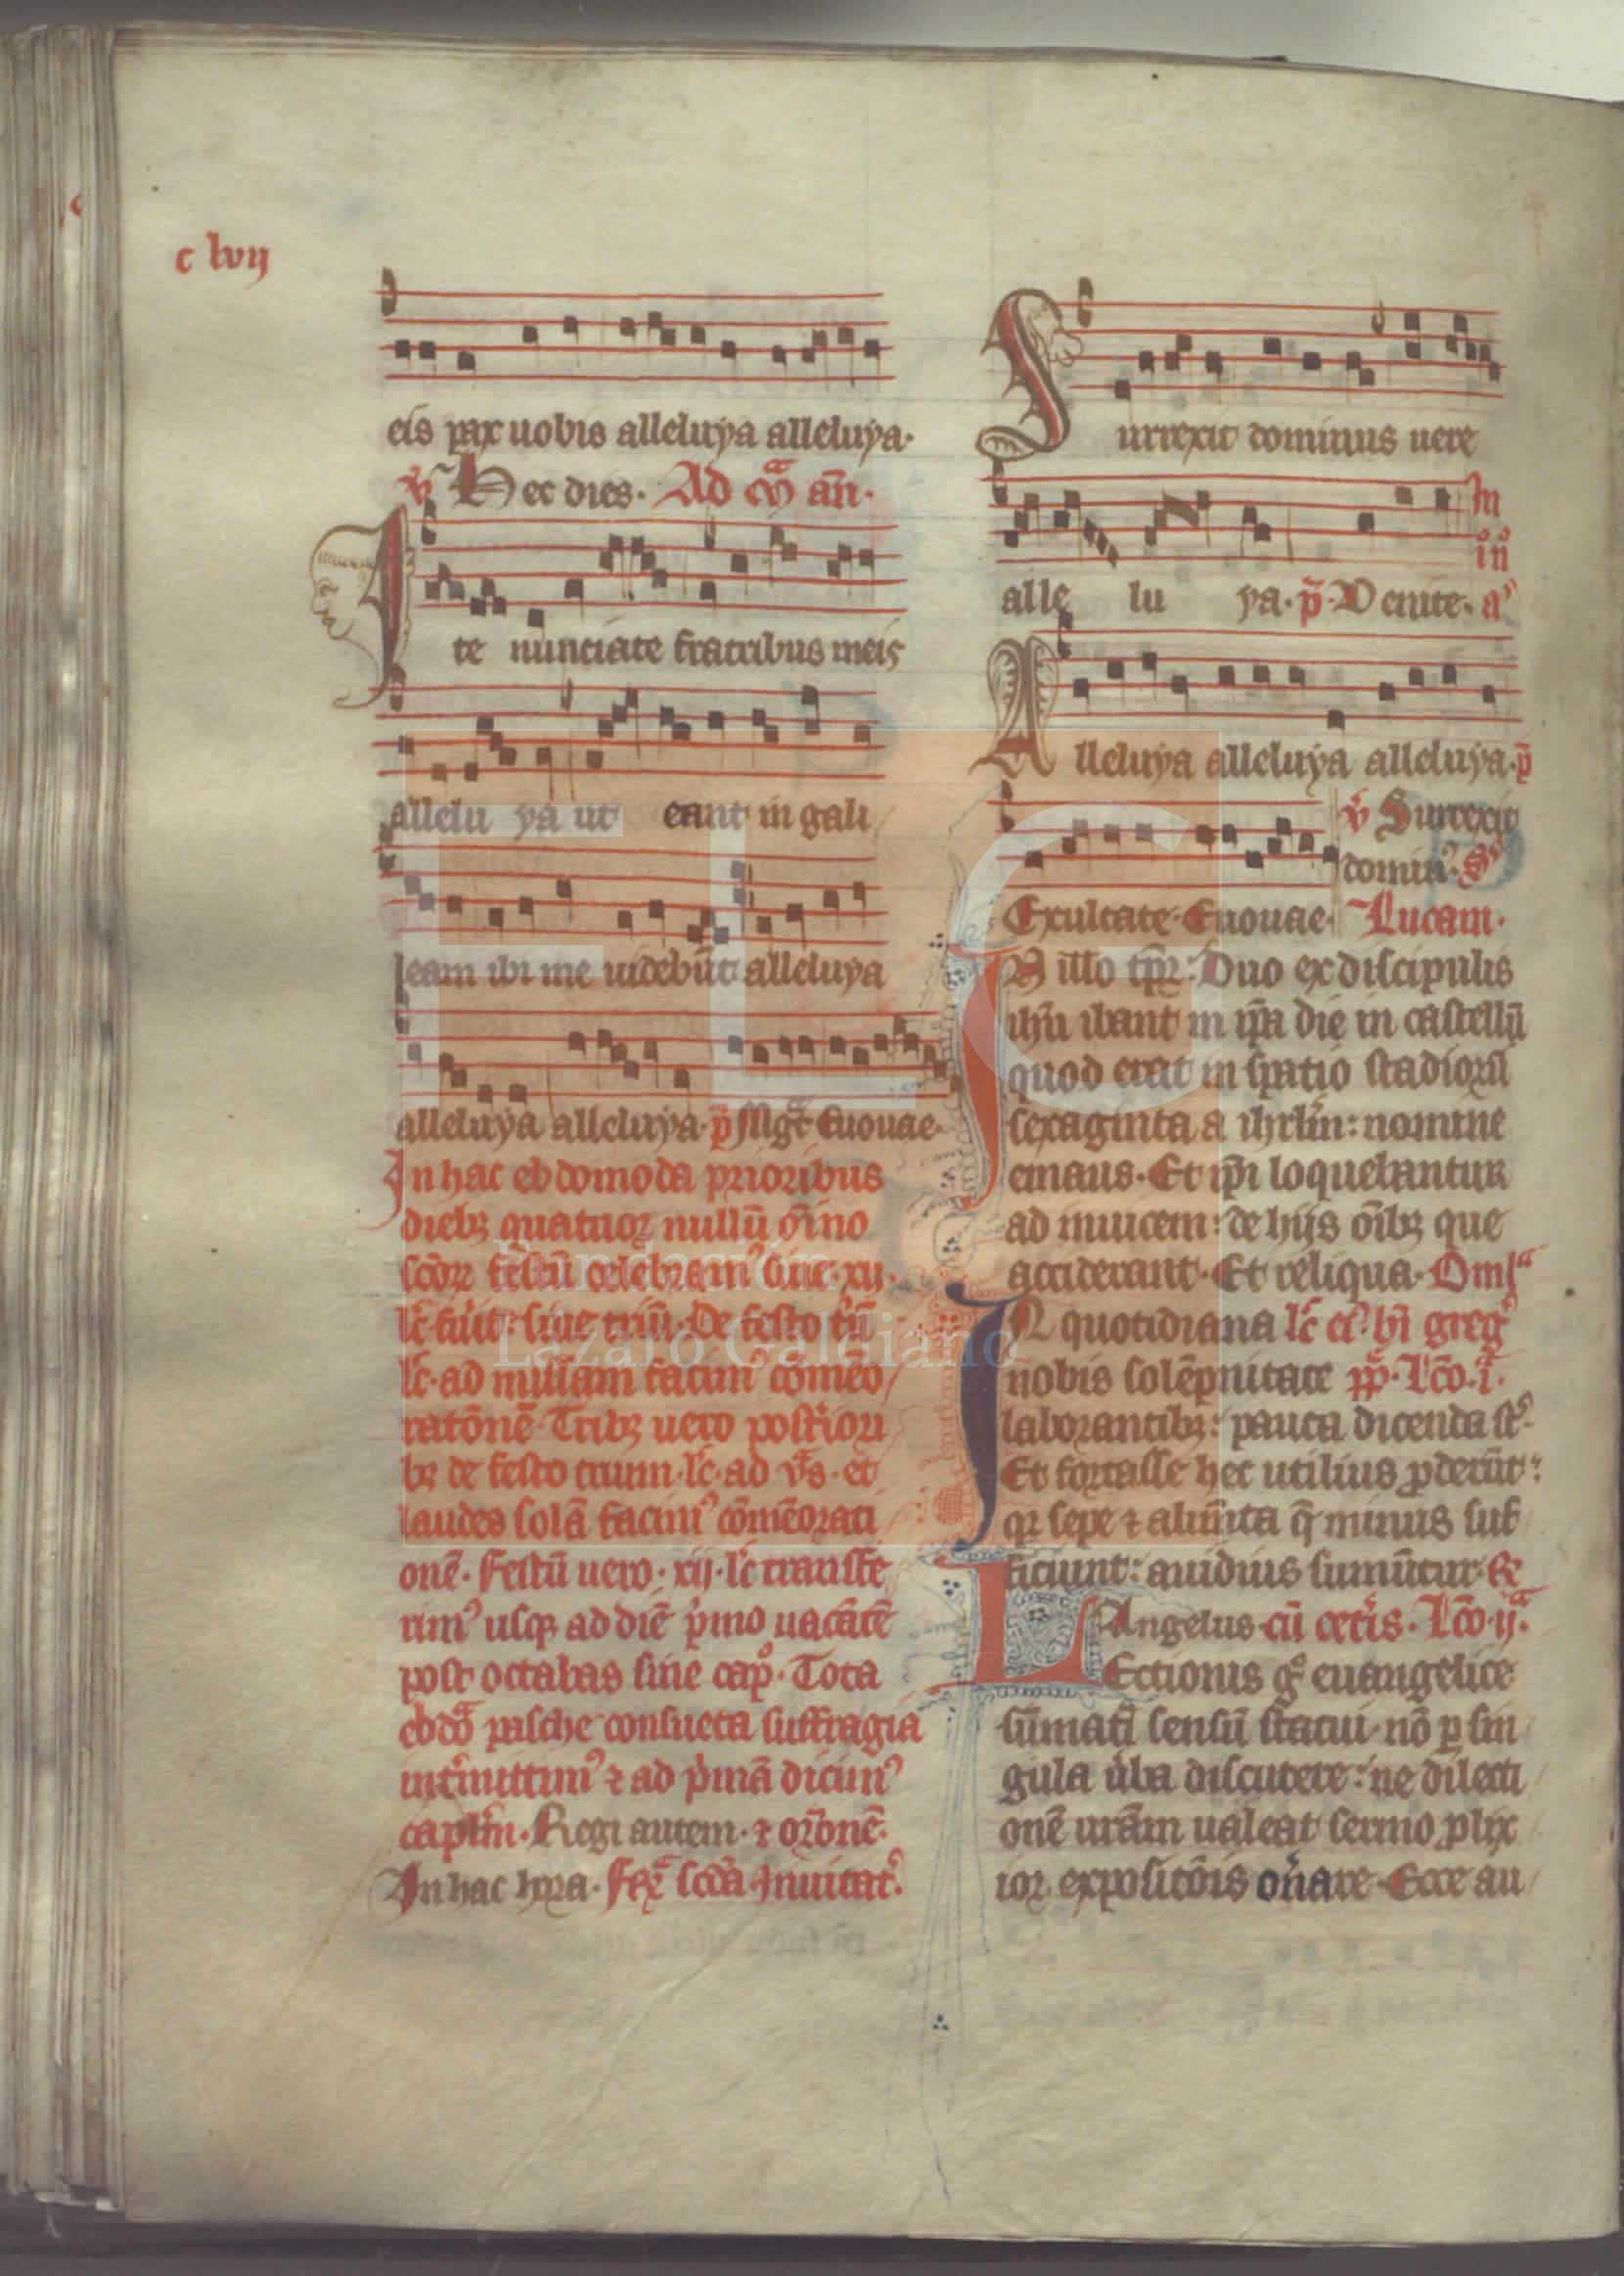 c lvij
eis pax uobis alleluya alleluya.
v̄ Hec dies. Ad m̄ añ.
Ite nunciate fratribus meis
allelu ya ut eant in gali
leam ibi me uidebūt alleluya
alleluya alleluya. p̄ Mgt̄ Euouae.
In hac ebdomoda prioribus
dieb; quatuor nullū oīno
scōr festū celebram' siue. xij.
lc̄ fu'it: siue triū. De festo t'ū
lc̄. ad missam facim' cōmeo
ratōnē. Trib; uero postiori
b; de festo trium. lc̄. ad vs̄. et
laudes solā facim' cōmēorati
onē. Festū uero. xij. lc̄ transfe
rim' usq; ad diē p'mo uacātē
post octabas sine cap'. Tota
ebdō pasche consueta suffragia
int'mittim' ⁊ ad p'mā dicim'
caplm̄. Regi autem. ⁊ orōnē.
In hac hora. Fer' scd'a Inuitat'.
Surrexit dominus uere
In
alle lu ya. p̄. Venite. a'
Alleluya alleluya alleluya. p̄
v̄ Surrexit
domin'.
Exultate. Euouae. Lucam.
IN illo tp̄r: Duo ex discipulis
ihū ibant in ip̄a die in castellū
quod erat in spatio stadiorū
sexaginta a ihrlm̄: nomine
emaus. Et ip̄i loquebantur
ad inuicem: de hijs oīb; que
acciderant. Et reliqua. Om̄l
IN quotidiana lc̄ ei'. bī greg'
nobis solēpnitate pp̄. Lcō. i.
laborantib;: pauca dicenda st̄.
Et fortasse hec utilius pderūt:
qr sepe ⁊ alimīta q̄ minus suf
ficiunt: auidius sumūtur. R
Angelus. cū cet'is. Lcō. ij.
LEctionis g' euangelice
sūmatī sensū statui. nō p sin
gula u'ba discutere: ne dilecti
onē urām ualeat sermo plix
ior expositōis on'are. Ecce au
FLG
Fundación
Lázaro Galdiano